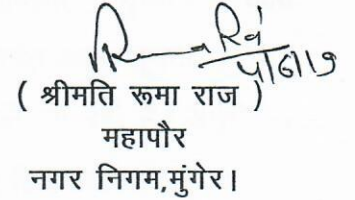 ( श्रीमति रूमा राज )
महापौर
नगर निगम,मुंगेर।